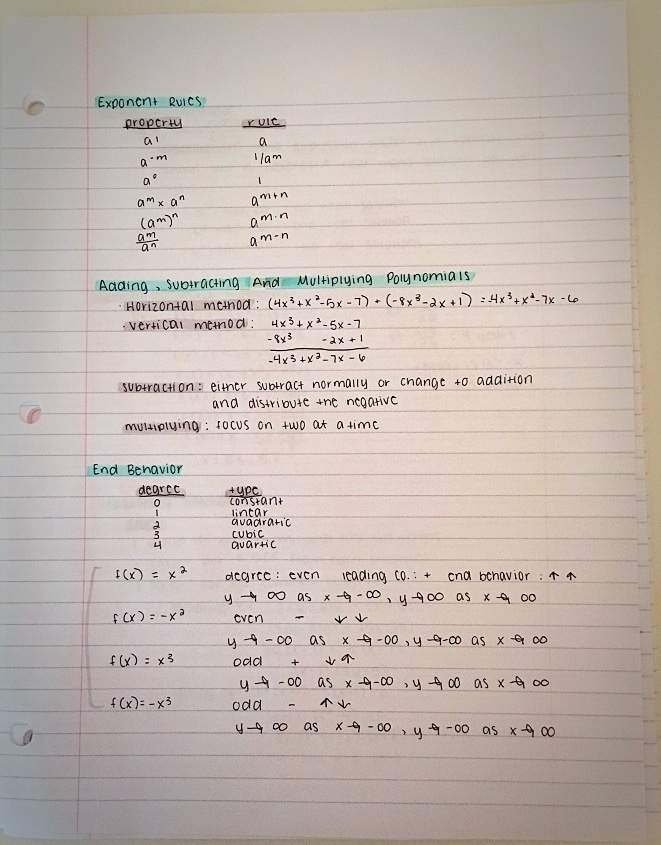 Exponent Rules
property rule
a¹ a
a⁻ᵐ 1/aᵐ
a⁰ 1
aᵐ × aⁿ aᵐ⁺ⁿ
(aᵐ)ⁿ aᵐ·ⁿ
aᵐ/aⁿ aᵐ⁻ⁿ
Adding, Subtracting And Multiplying Polynomials
· Horizontal method: (4x³+x²-5x-7) + (-8x³-2x+1) = -4x³+x²-7x-6
· vertical method: 4x³+x²-5x-7
-8x³ -2x+1
-4x³+x²-7x-6
subtraction: either subtract normally or change to addition
and distribute the negative
multiplying: focus on two at a time
End Behavior
degree type
0 constant
1 linear
2 quadratic
3 cubic
4 quartic
f(x) = x² degree: even leading co.: + end behavior: ↑ ↑
y → ∞ as x → -∞, y → ∞ as x → ∞
f(x) = -x² even - ↓ ↓
y → -∞ as x → -∞, y → -∞ as x → ∞
f(x) = x³ odd + ↓ ↑
y → -∞ as x → -∞, y → ∞ as x → ∞
f(x) = -x³ odd - ↑ ↓
y → ∞ as x → -∞, y → -∞ as x → ∞